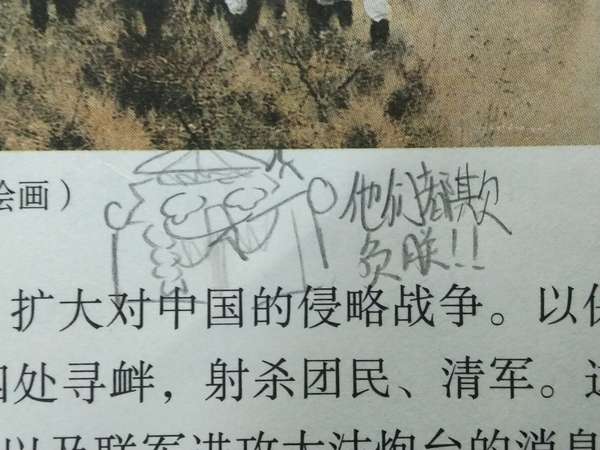 绘画）
他们都欺
负朕!!
扩大对中国的侵略战争。以
四处寻衅，射杀团民、清军。
以及联军进攻大沽炮台的消息